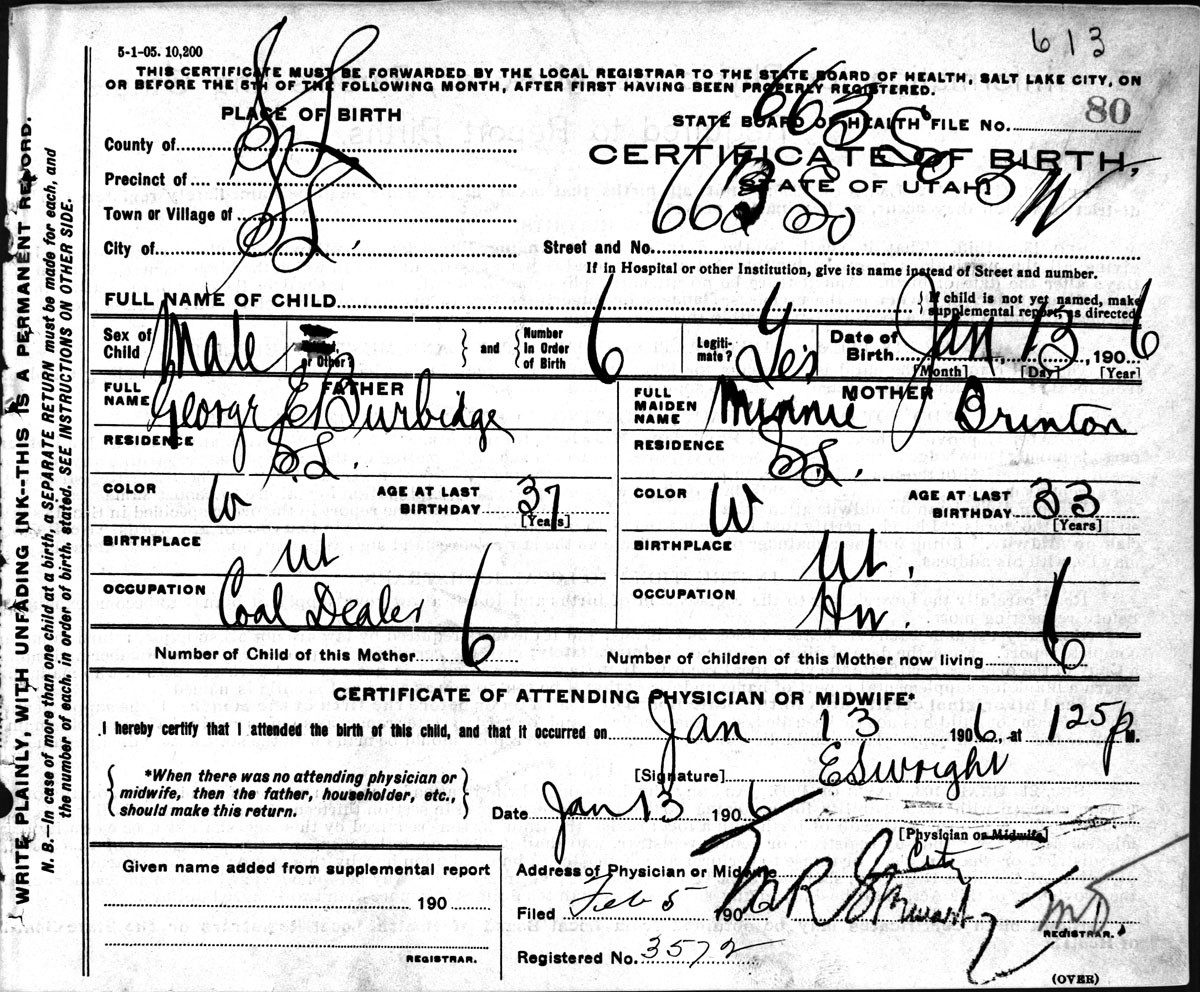 613
5-1-05. 10,200
THIS CERTIFICATE MUST BE FORWARDED BY THE LOCAL REGISTRAR TO THE STATE BOARD OF HEALTH, SALT LAKE CITY, ON
OR BEFORE THE 5TH OF THE FOLLOWING MONTH, AFTER FIRST HAVING BEEN PROPERLY REGISTERED.
PLACE OF BIRTH
STATE BOARD OF HEALTH FILE NO. 80
CERTIFICATE OF BIRTH,
STATE OF UTAH
County of S L
Precinct of
Town or Village of
City of S L.
663 So
Street and No.
If in Hospital or other Institution, give its name instead of Street and number.
FULL NAME OF CHILD
If child is not yet named, make supplemental report, as directed.
Sex of Child Male or Other? and Number In Order of Birth 6 Legiti-mate? Yes Date of Birth Jan 13, 1906
[Month] [Day] [Year]
FATHER
FULL NAME George E Burbidge
RESIDENCE S.L.
COLOR W AGE AT LAST BIRTHDAY 37 [Years]
BIRTHPLACE Ut
OCCUPATION Coal Dealer
MOTHER
FULL MAIDEN NAME Minnie J Brinton
RESIDENCE S.L.
COLOR W AGE AT LAST BIRTHDAY 33 [Years]
BIRTHPLACE Ut.
OCCUPATION Hw.
Number of Child of this Mother 6 Number of children of this Mother now living 6
CERTIFICATE OF ATTENDING PHYSICIAN OR MIDWIFE*
I hereby certify that I attended the birth of this child, and that it occurred on Jan 13 1906, at 125 P M.
*When there was no attending physician or
midwife, then the father, householder, etc.,
should make this return.
[Signature] E S Wright
Date Jan 13 1906
[Physician or Midwife]
Address of Physician or Midwife City
Filed Feb 5 1906
REGISTRAR.
Registered No. 3572
Given name added from supplemental report
190
REGISTRAR.
(OVER)
WRITE PLAINLY, WITH UNFADING INK--THIS IS A PERMANENT RECORD.
N. B.--In case of more than one child at a birth, a SEPARATE RETURN must be made for each, and
the number of each, in order of birth, stated. SEE INSTRUCTIONS ON OTHER SIDE.